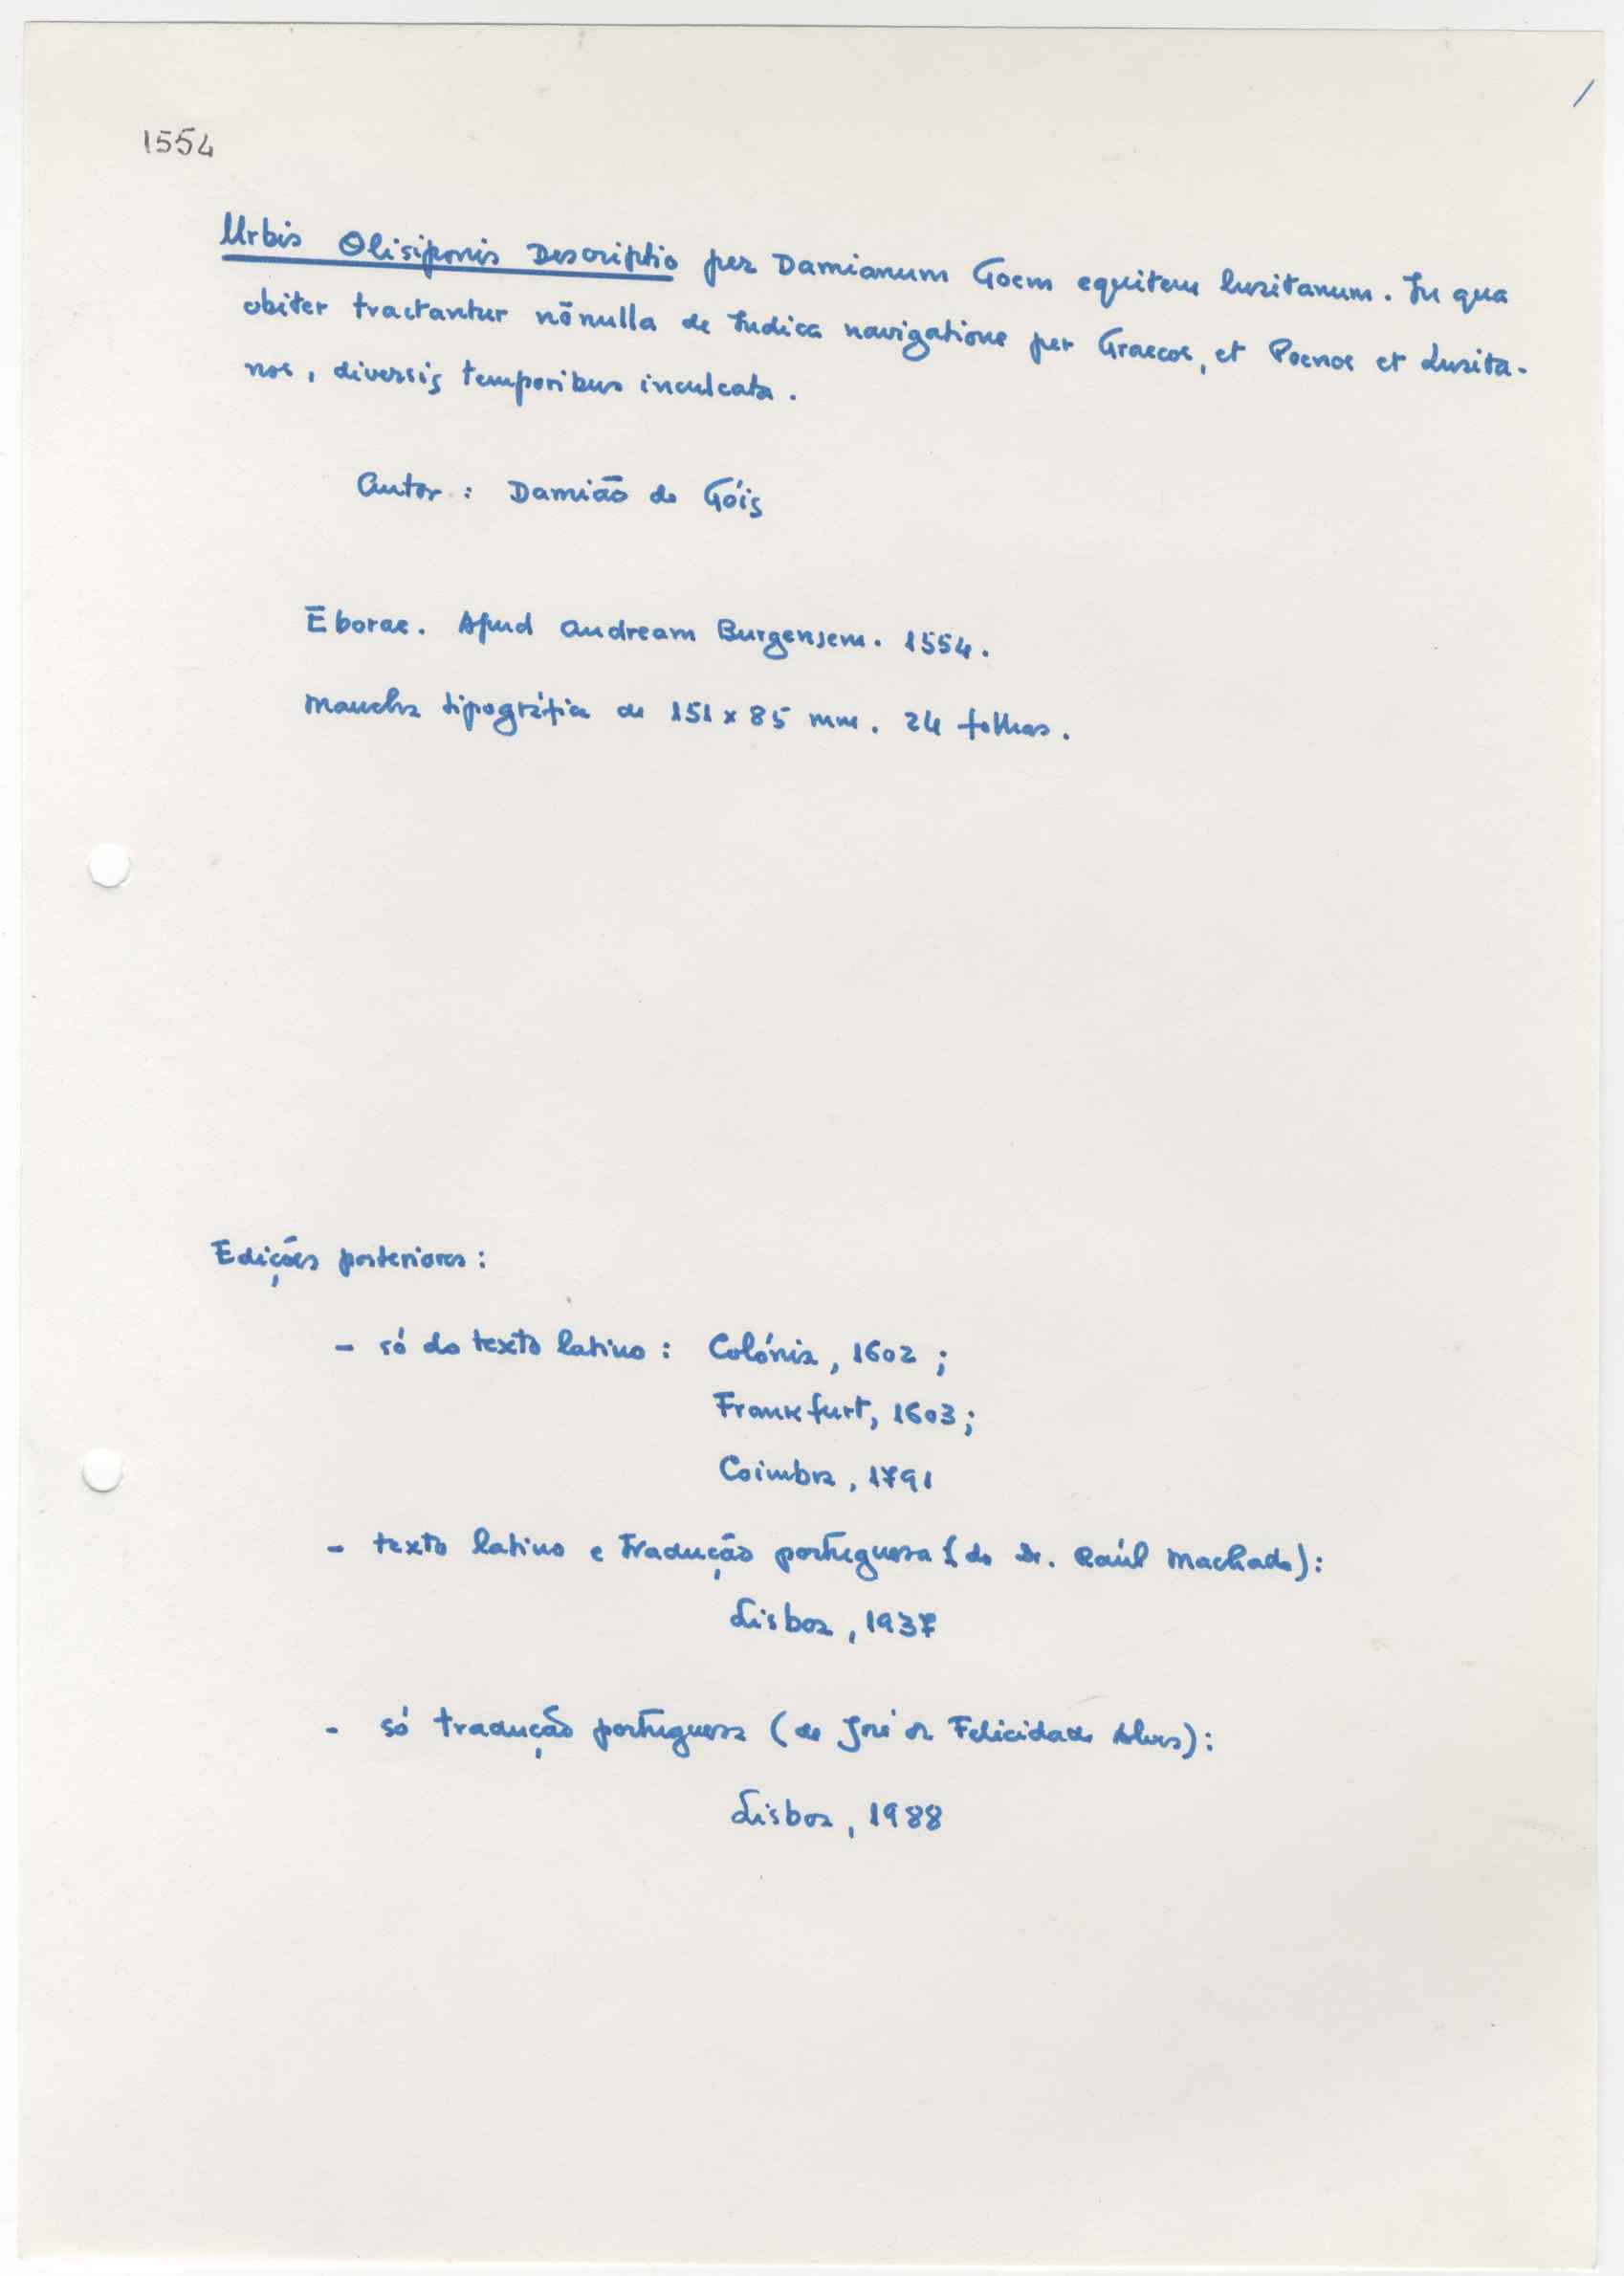 1554
Urbis Olisiponis Descriptio per Damianum Goem equitem lusitanum. In qua
obiter tractantur nōnulla de Indica navigatione per Graecos, et Poenos et Lusita-
nos, diversis temporibus inculcata.
Autor: Damião de Góis
Eborae. Apud Andream Burgensem. 1554.
Mancha tipográfica de 151 x 85 mm. 24 folhas.
Edições posteriores:
- só do texto latino: Colónia, 1602;
Frankfurt, 1603;
Coimbra, 1791
- texto latino e tradução portuguesa (do Dr. Raúl Machado):
Lisboa, 1937
- só tradução portuguesa (de José da Felicidade Alves):
Lisboa, 1988